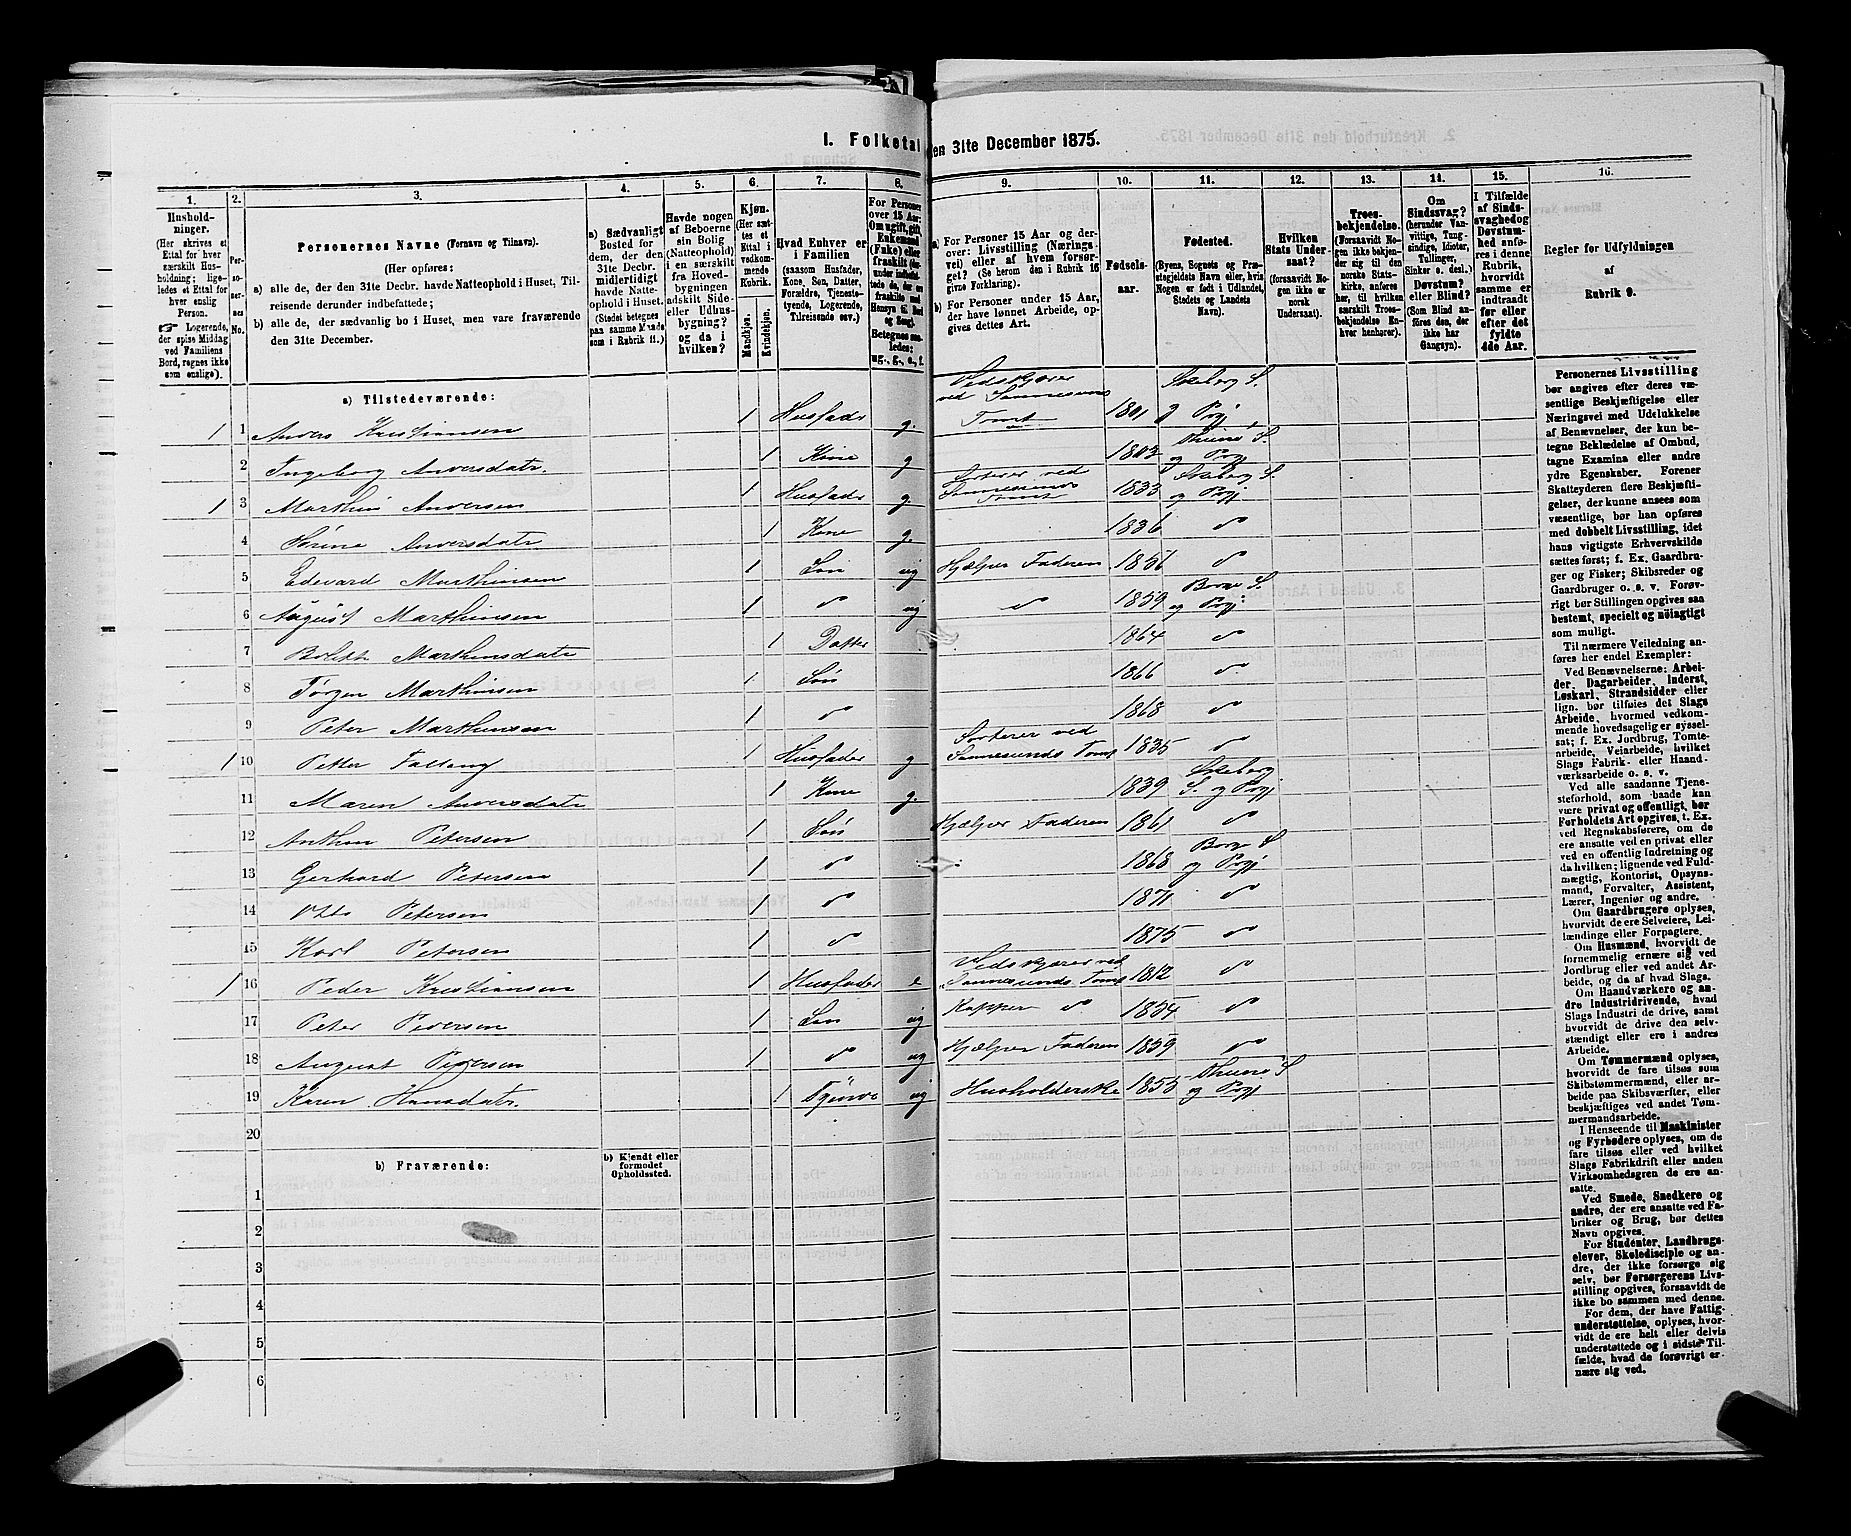 I. Folketal den 31te December 1875.
1. 2. 3. 4. 5. 6. 7. 8. 9. 10. 11. 12. 13. 14. 15. 16.
Hushold-
ninger.
(Her skrives et
Ettal for hver
særskilt Hus-
holdning; lige-
ledes et Ettal for
hver enslig
Person.
☞ Logerende,
der spise Middag
ved Familiens
Bord, regnes ikke
som enslige).
Per-
so-
ner-
nes
No.
Personernes Navne (Fornavn og Tilnavn).
(Her opføres:
a) alle de, der den 31te Decbr. havde Natteophold i Huset, Til-
reisende derunder indbefattede;
b) alle de, der sædvanlig bo i Huset, men vare fraværende
den 31te December.
a) Sædvanligt
Bosted for
dem, der den
31te Decbr.
midlertidigt
havde Natte-
ophold i Huset.
(Stedet betegnes
paa samme Maade
som i Rubrik 11.)
Havde nogen
af Beboerne
sin Bolig
(Natteophold)
i en særskilt
fra Hoved-
bygningen
adskilt Side-
eller Udhus-
bygning?
og da i
hvilken?
Kjøn.
(Her sæt-
tes et
Ettal i
vedkom-
mende
Rubrik.
Mandkjøn.
Kvindekjøn.
Hvad Enhver er
i Familien
(saasom Husfader,
Kone, Søn, Datter,
Forældre, Tjeneste-
tyende, Logerende,
Tilreisende osv.)
For Personer
over 15 Aar:
Om ugift, gift,
Enkemand
(Enke) eller
fraskilt
Betegnes saa-
ledes:
ug., g., e., f.
a) For Personer 15 Aar og der-
over: Livsstilling (Nærings-
vei) eller af hvem forsør-
get? (Se herom den i Rubrik 16
givne Forklaring).
b) For Personer under 15 Aar,
der have lønnet Arbeide, op-
gives dettes Art.
Fødsels-
aar.
Fødested.
(Byens, Sognets og Præ-
stegjeldets Navn eller, hvis
Nogen er født i Udlandet,
Stedets og Landets
Navn).
Hvilken
Stats Under-
saat?
(forsaavidt No-
gen ikke er
norsk
Undersaat).
Troes-
bekjendelse.
(Forsaavidt No-
gen ikke bekjen-
der sig til den
norske Stats-
kirke, anføres
her, til hvilken
særskilt Troes-
bekjendelse En-
hver henhører).
Om
Sindssvag?
(herunder Van-
vittige, Tung-
sindige, Idioter,
Tullinger,
Sinker o. desl.)
Døvstum?
eller Blind?
(Som Blind an-
føres den, der
ikke har
Gangsyn).
I Tilfælde
af Sinds-
svaghed og
Døvstum-
hed anfø-
res i denne
Rubrik,
hvorvidt
samme er
indtraadt
før eller
efter det
fyldte
4de Aar.
Regler for Udfyldningen
af
Rubrik 9.
a) Tilstedeværende:
1 1 Anders Kristiansen 1 Husfader g. Vedskjærer ved Sannesunds Tomt 1801 Skeberg S. og Prgj
2 Ingeborg Andersdatr. 1 Kone g 1803 Thunø S. og Prgj
1 3 Marthin Andersen 1 Husfader g. Sorterer ved Sannesunds Tomt 1833 Skeberg S. og Prgj
4 Sørine Andersdatr 1 Kone g. 1836 do
5 Edevard Marthinsen 1 Søn ug Hjælper Faderen 1856 do
6 August Marthinsen 1 do ug do 1859 Borge S. og Prgj:
7 Marthinsdatr 1 Datter 1864 do
8 Jørgen Marthinsen 1 Søn 1866 do
9 Peter Marthinsen 1 do 1868 do
1 10 Petter Falláng 1 Husfader g Sorterer ved Sannesunds Tomt 1835 do
11 Maren Andersdatr 1 Kone g. 1839 Skeberg S. og Prgj
12 Anthon Petersen 1 Søn Hjælper Faderen 1861 do
13 Gerhard Petersen 1 do 1868 Borge S og Prgj
14 Otto Petersen 1 do 1871 do
15 Karl Petersen 1 do 1875 do
1 16 Peder Kristiansen 1 Husfader e Vedskjærer ved Sannesunds Tomt 1812 do
17 Peter Pedersen 1 Søn ug Kapper do 1854 do
18 August Pedersen 1 do ug Hjælper Faderen 1859 do
19 Karen Hansdatr. 1 Tjener ug Husholderske 1855 Thunø S og Prgj
20
b) Fraværende:
b) Kjendt eller
formodet
Opholdssted.
1
2
3
4
5
6
Personernes Livsstilling
bør angives efter deres væ-
sentlige Beskjæftigelse eller
Næringsvei med Udelukkelse
af Benævnelser, der kun be-
tegne Beklædelse af Ombud,
tagne Examina eller andre
ydre Egenskaber. Forener
Skatteyderen flere Beskjæfti-
gelser, der kunne ansees som
væsentlige, bør han opføres
med dobbelt Livsstilling, idet
hans vigtigste Erhvervskilde
sættes først; f. Ex. Gaardbru-
ger og Fisker; Skibsreder og
Gaardbruger o. s. v. Forøv-
rigt bør Stillingen opgives saa
bestemt, specielt og nøiagtigt
som muligt.
Til nærmere Veiledning an-
føres her endel Exempler:
Ved Benævnelserne: Arbei-
der, Dagarbeider, Inderst,
Løskarl, Strandsidder eller
lign. bør tilføies det Slags
Arbeide, hvormed vedkom-
mende hovedsagelig er syssel-
sat; f. Ex. Jordbrug, Tomte-
arbeide, Veiarbeide, hvilket
Slags Fabrik- eller Haand-
værksarbeide o. s. v.
Ved alle saadanne Tjene-
steforhold, som baade kan
være privat og offentligt, bør
Forholdets Art opgives, t. Ex.
ved Regnskabsførere, om de
ere ansatte ved en privat eller
ved en offentlig Indretning og
da hvilken; lignende ved Fuld-
mægtig, Kontorist, Opsyns-
mand, Forvalter, Assistent,
Lærer, Ingeniør og andre.
Om Gaardbrugere oplyses,
hvorvidt de ere Selveiere, Lei-
lændinge eller Forpagtere.
Om Husmænd, hvorvidt de
fornemmelig ernære sig ved
Jordbrug eller ved andet Ar-
beide, og da af hvad Slags.
Om Haandværkere og an-
dre Industridrivende, hvad
Slags Industri de drive, samt
hvorvidt de drive den selv-
stændigt eller ere i andres
Arbeide.
Om Tømmermænd oplyses,
hvorvidt de fare tilsøs som
Skibstømmermænd, eller ar-
beide paa Skibsværfter, eller
beskjæftiges ved andet Tøm-
mermandsarbeide.
I Henseende til Maskinister
og Fyrbødere oplyses, om de
fare tilsøs eller ved hvilket
Slags Fabrikdrift eller anden
Virksomhedsgren de ere an-
satte.
Ved Smede, Snedkere og
andre, der ere ansatte ved Fa-
briker og Brug, bør dettes
Navn opgives.
For Studenter, Landbrugs-
elever, Skoledisciple og an-
dre, der ikke forsørge sig
selv, bør Forsørgerens Livs-
stilling opgives, forsaavidt de
ikke bo sammen med denne.
For dem, der have Fattig-
understøttelse, oplyses, hvor-
vidt de ere helt eller delvis
understøttede og i sidste Til-
fælde, hvad de forøvrigt er-
nære sig ved.